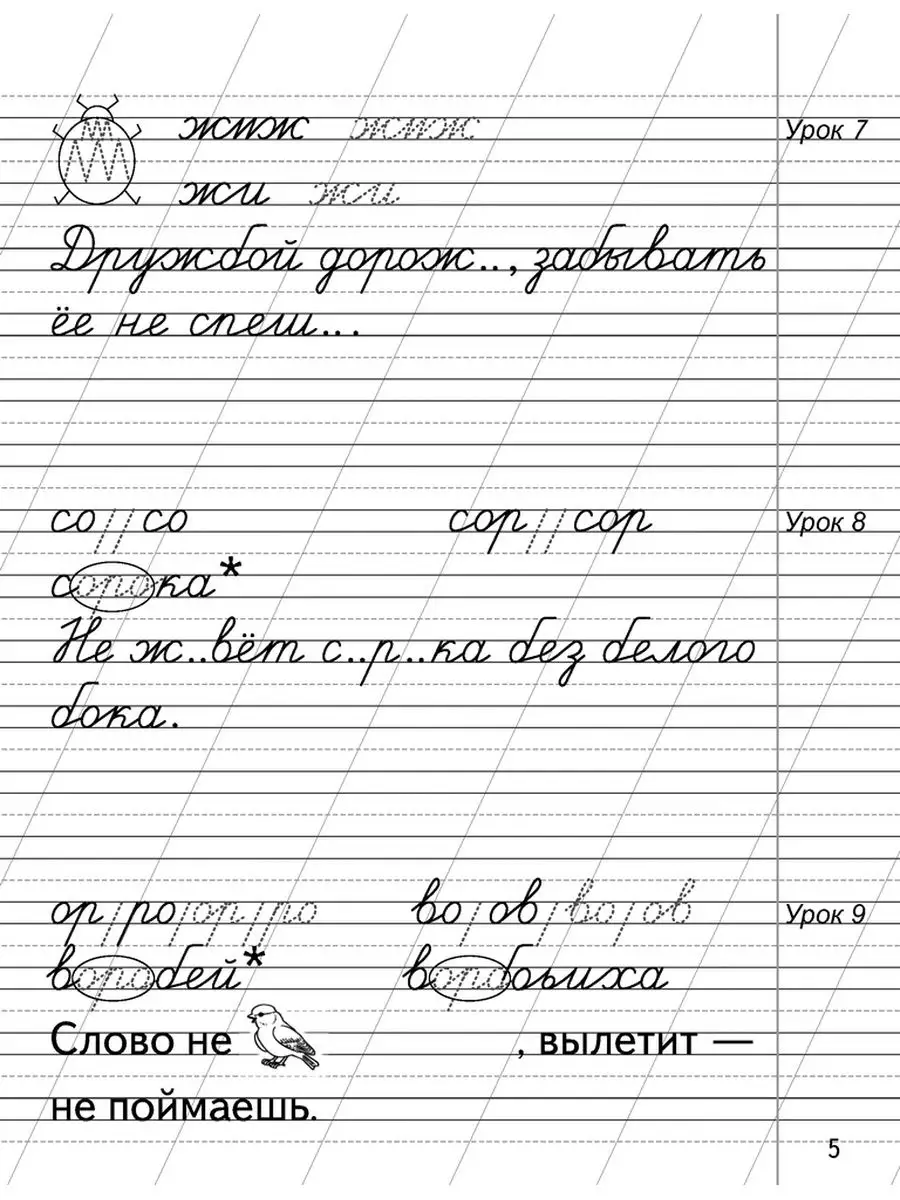 жжж жжж Урок 7
жи жи
Дружбой дорож.., забывать
ёе не спеш... 
со // со сор // сор Урок 8
сорока*
Не ж..вёт с..р..ка без белого
бока.
ор/ро/ор/ро во/ов/во/ов Урок 9
воробей* воробьиха
Слово не , вылетит —
не поймаешь.
5